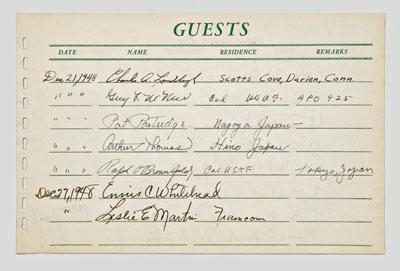 GUESTS
DATE NAME RESIDENCE REMARKS
Dec 21/1948 Charles A. Lindbergh Scotts Cove, Darien, Conn.
" " " Col USAF APO 925
" " " Pat Partridge Nagoya Japan —
" " " Arthur Thomas Japan
" " " Ralph Col USAF Tokyo, Japan
Dec 27, 1948 Ennis C Whitehead
" Leslie E Martin